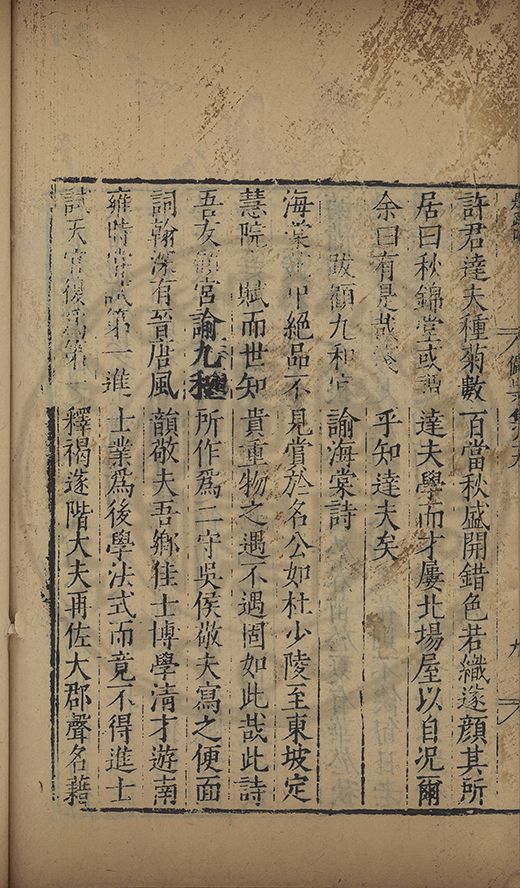 許君達夫種菊數百當秋盛開錯色若織遂顏其所
居曰秋錦堂或謂達夫學而才屢北場屋以自況爾
余曰有是哉淺乎知達夫矣
跋顧九和宮諭海棠詩
海棠花中絕品不見賞於名公如杜少陵至東坡定
慧院賦而世知貴重物之遇不遇固如此哉此詩
吾友顧宮諭九和所作爲二守吳侯敬夫寫之便面
詞翰深有晉唐風韻敬夫吾鄉佳士博學清才遊南
雍時嘗試第一進士業爲後學法式而竟不得進士
試天官復爲第一釋褐遂階大夫再佐大郡聲名藉